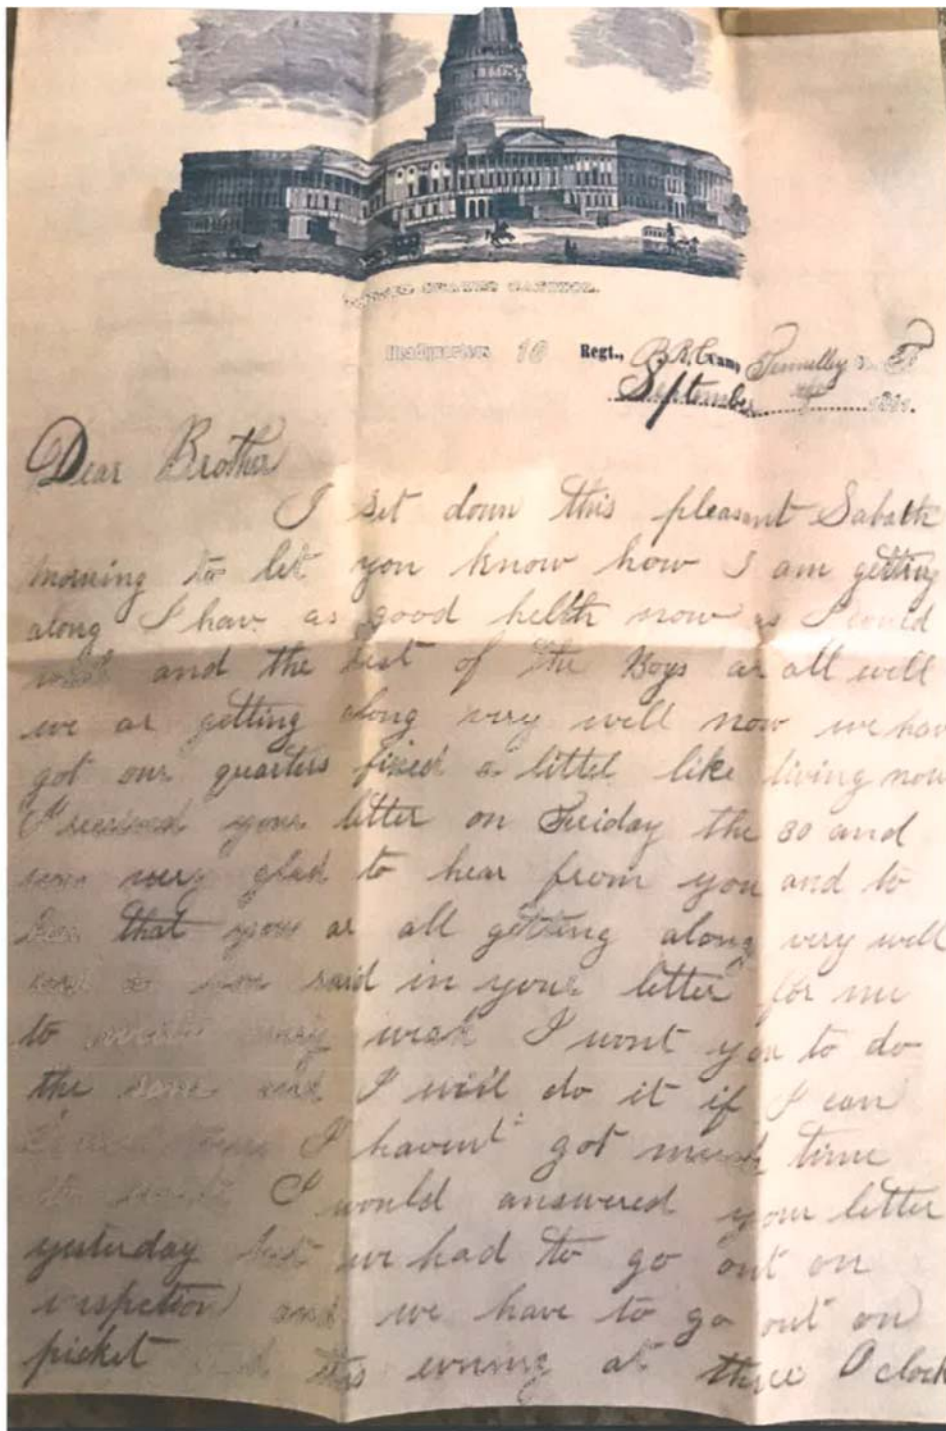 UNITED STATES CAPITOL.
Headquarters 10 Regt., P. R. C. Camp Tennelley
September 1861.
Dear Brother
I set down this pleasant Sabath
morning to let you know how I am getting
along I hav as good helth now as I could
wish and the rest of the Boys ar all well
we ar getting along very well now we hav
got our quarters fixed a littel like living now
I received your letter on Friday the 30 and
was very glad to hear from you and to
hear that you ar all getting along very well
said in your letter for me
to write every weak I wont you to do
the same and I will do it if I can
I havent got much time
to write I would answered your letter
yesterday but we had to go out on
inspection and we have to go out on
picket this evning at three O clock